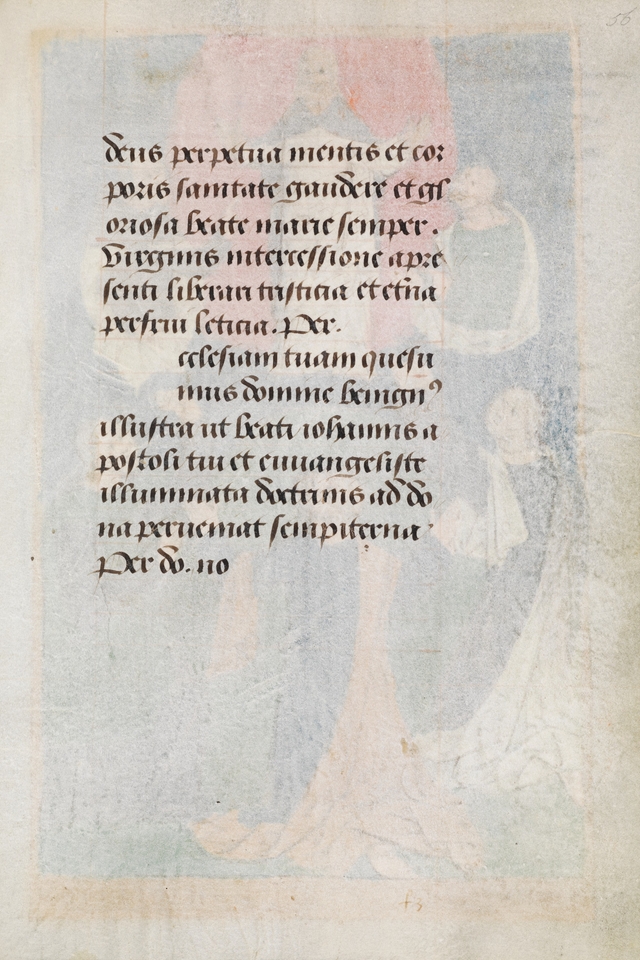 deus perpetua mentis et cor
poris sanitate gaudere et gl
oriosa beate marie semper.
Virginis intercessione a pre
senti liberari tristicia et etña
perfrui leticia. Per.
cclesiam tuam quesu
mus domine benignꝰ
illustra ut beati iohannis a
postoli tui et euuangeliste
illuminata doctrinis ad do
na perueniat sempiterna
Per do. no
56